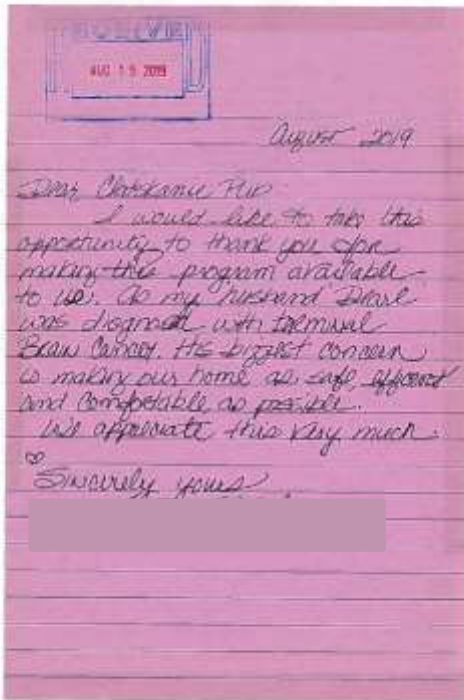 RECEIVED
AUG 19 2019
August 2019
Dear Clatskanie PUD
I would like to take this
opportunity to thank you for
making this program available
to us. As my husband
was diagnosed with terminal
Brain Cancer. His biggest concern
is making our home as safe, efficient
and comfortable as possible.
We appreciate this very much.
♡
Sincerely yours